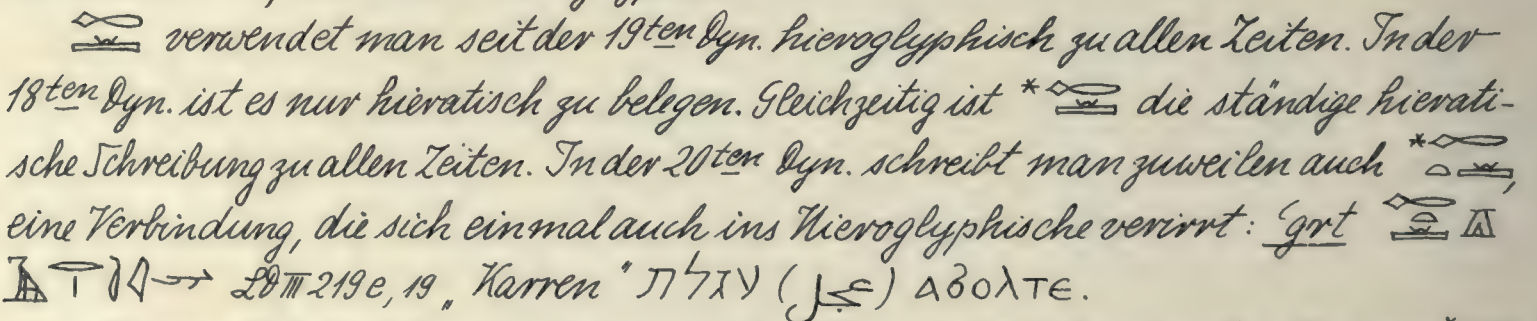 verwendet man seit der 19ten Dyn. hieroglyphisch zu allen Zeiten. In der
18ten Dyn. ist es nur hieratisch zu belegen. Gleichzeitig ist * die ständige hierati-
sche Schreibung zu allen Zeiten. In der 20ten Dyn. schreibt man zuweilen auch *,
eine Verbindung, die sich einmal auch ins Hieroglyphische verirrt: ʿgrt
LD III 219e, 19 „Karren“ עגלת (عجل) ⲁϭⲟⲗⲧⲉ.